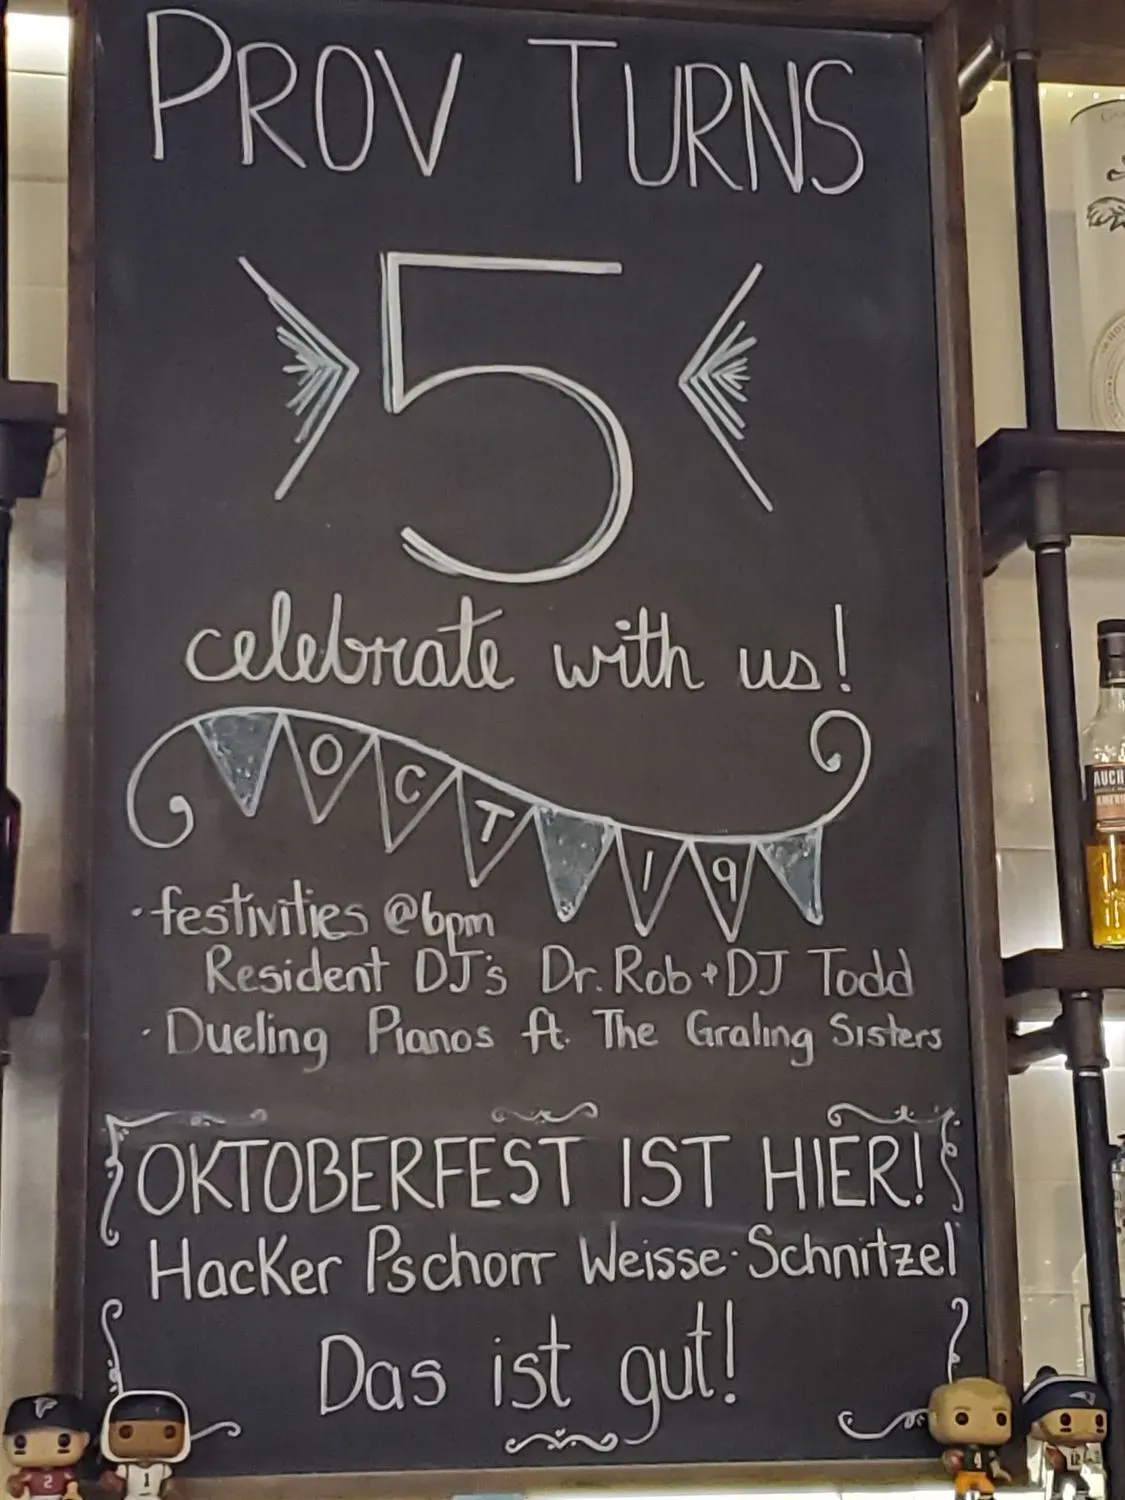 PROV TURNS
5
celebrate with us!
OCT 19
· festivities @6pm
Resident DJ's Dr. Rob + DJ Todd
· Dueling Pianos ft. The Graling Sisters
OKTOBERFEST IST HIER!
Hacker Pschorr Weisse · Schnitzel
Das ist gut!
2
1
4
12